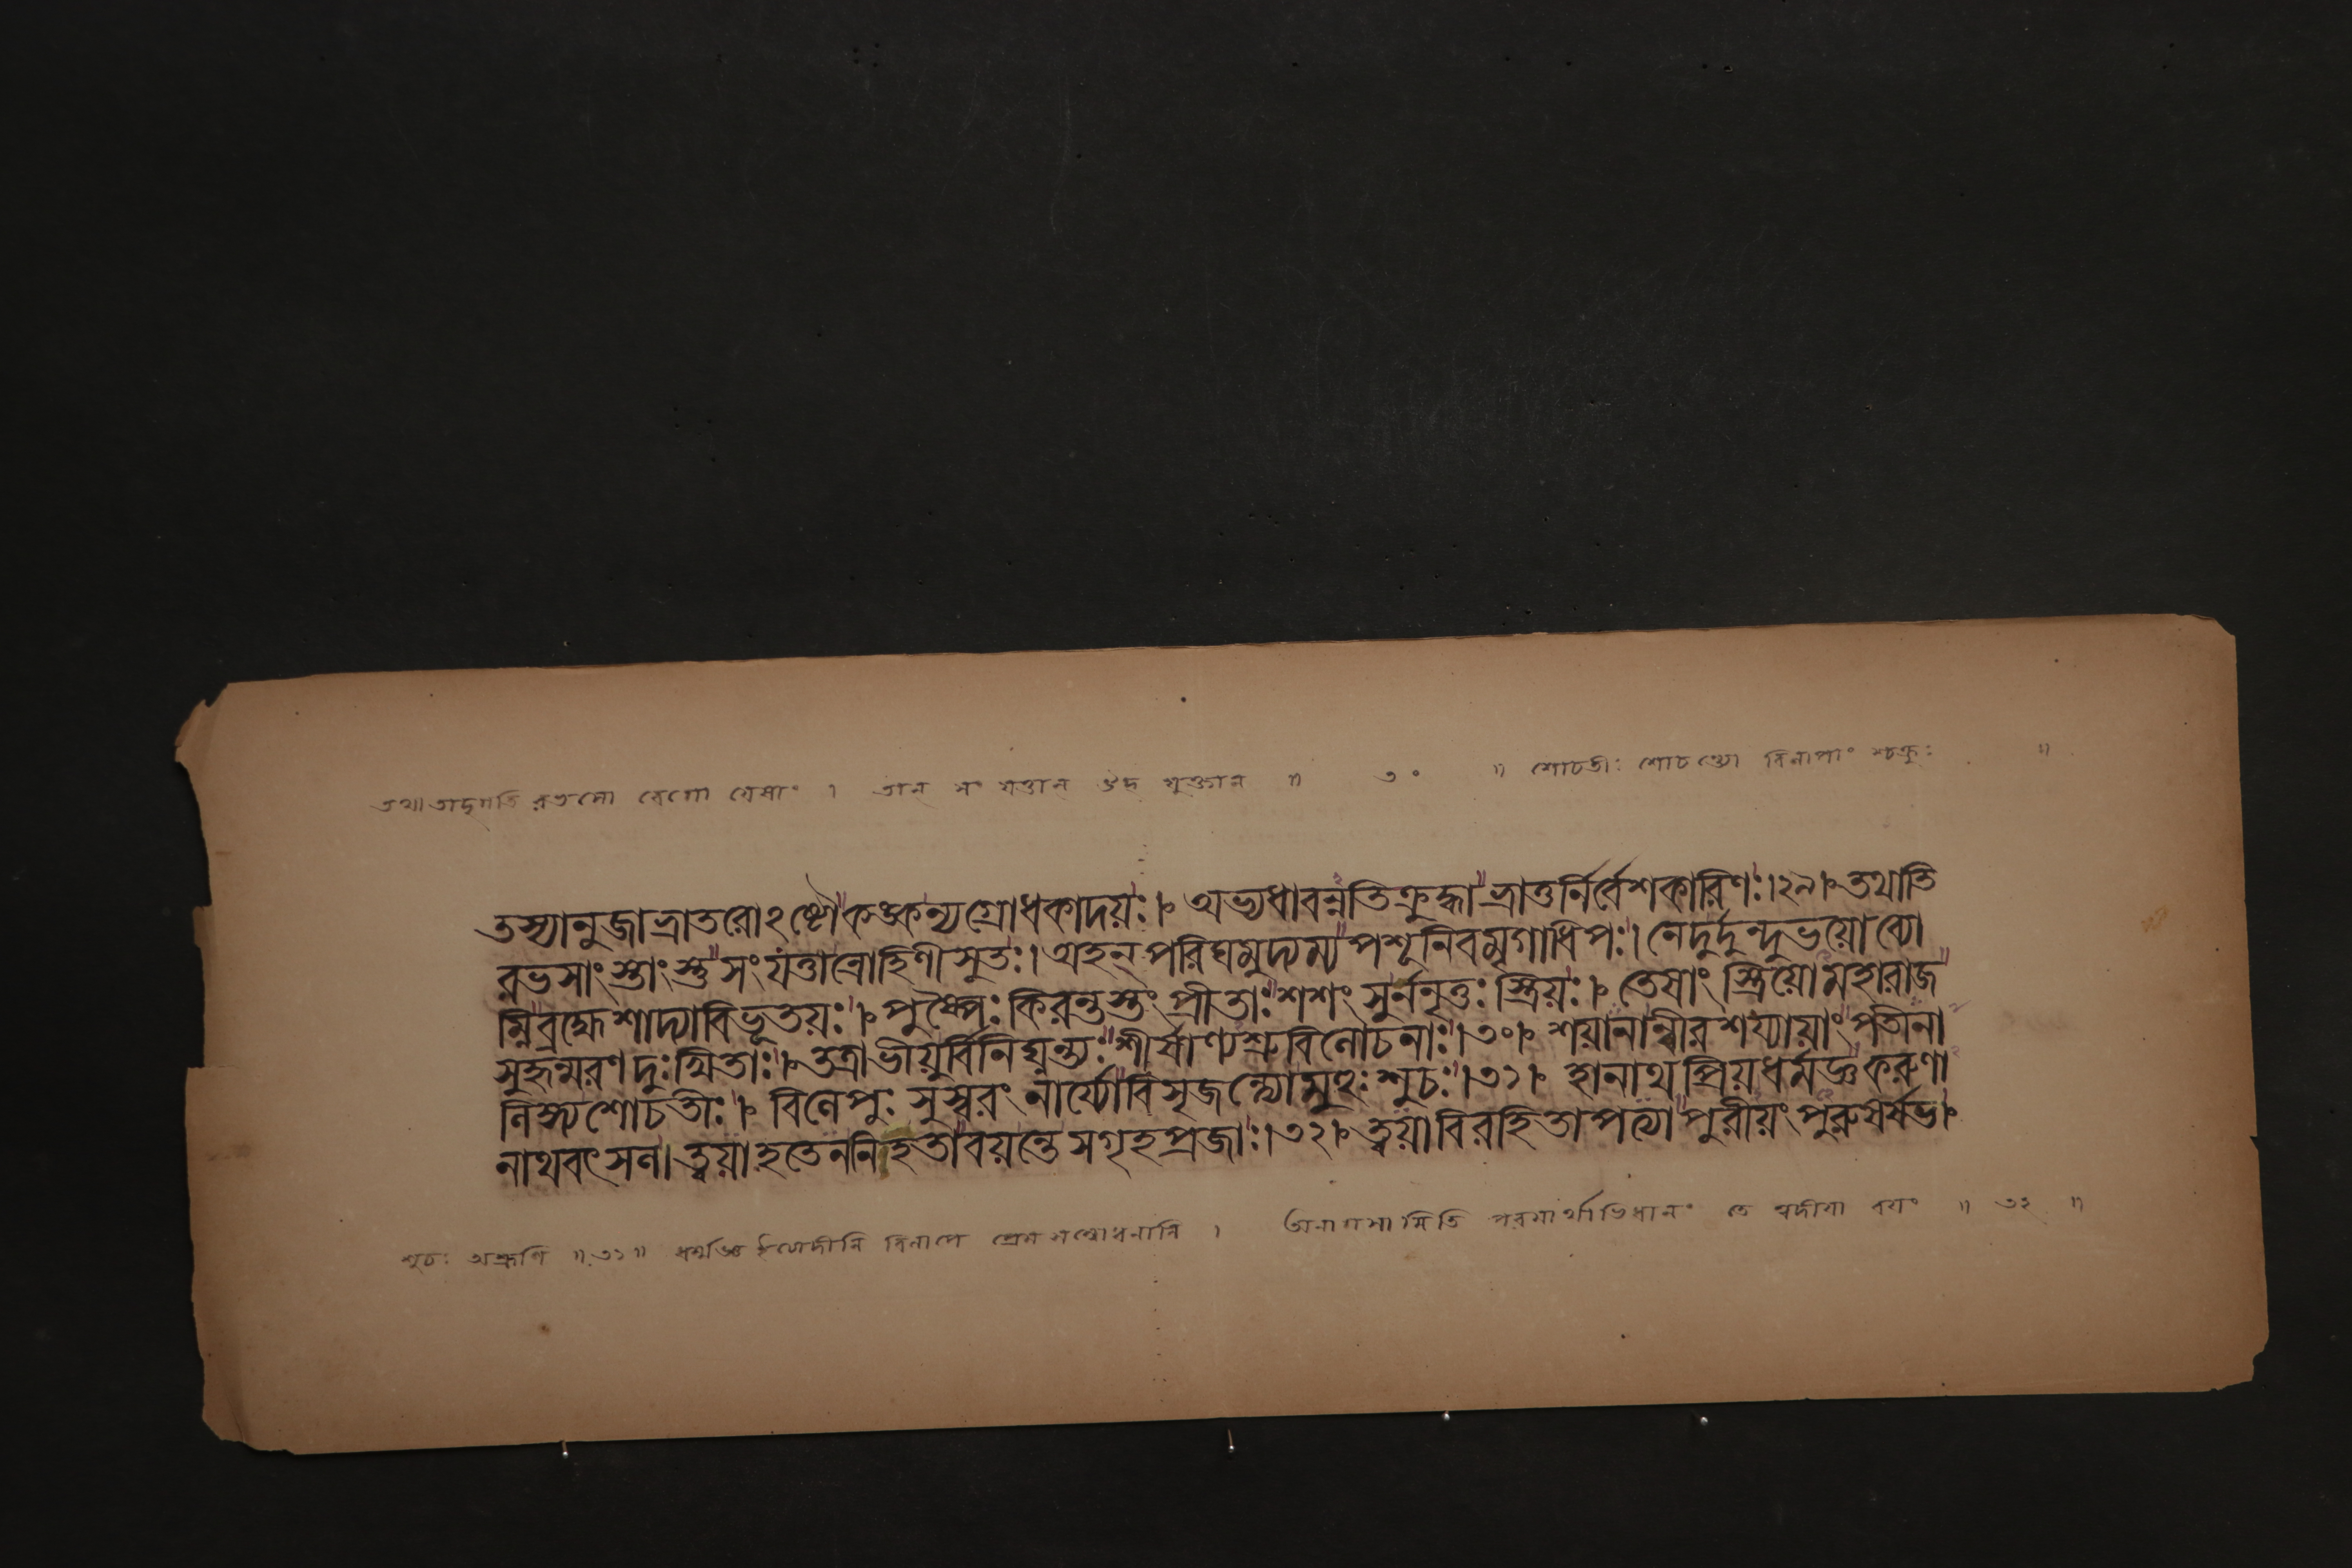 তথা তাদৃগতি রভসো বেগো যেষাং । তান্ সংযত্তান্ উদ্যুক্তান্ ॥ ৩০ ॥ শোচতীঃ শোচন্ত্যো বিলাপাং শ্চক্রুঃ ॥
তস্যানুজাভ্রাতরোঽষ্টৌকঙ্কন্যগ্রোধকাদয়ঃ । অভ্যধাবন্নতিক্রুদ্ধাভ্রাতুর্নির্বেশকারিণঃ ।২৯। তথাতি
রভসাংস্তাংস্তুসংযত্তান্রোহিণীসুতঃ । অহন্ পরিঘমুদ্যম্যপশূনিবমৃগাধিপঃ । নেদুর্দুন্দুভয়োব্যো
ম্নিব্রহ্মেশাদ্যাবিভূতয়ঃ । পুষ্পৈঃকিরন্তস্তংপ্রীতাঃশশংসুর্ননৃতুঃস্ত্রিয়ঃ । তেষাংস্ত্রিয়োমহারাজ
সুহৃন্মরণদুঃখিতাঃ । তত্রাভীয়ুর্বিনিঘ্নন্ত্যঃশীর্ষাণ্যশ্রুবিলোচনাঃ ।৩০। শয়ানান্বীরশয্যায়াংপতীনা
লিঙ্গ্যশোচতীঃ । বিলেপুঃসুস্বরংনার্য্যোবিসৃজন্ত্যোমুহুঃশুচঃ ।৩১। হানাথপ্রিয়ধর্মজ্ঞকরুণা
নাথবৎসল । ত্বয়াহতেননিহতাবয়ন্তেসগৃহপ্রজাঃ ।৩২। ত্বয়াবিরহিতাপত্যাপুরীয়ংপুরুষর্ষভ ।
শুচঃ অশ্রূণি ॥ ৩১ ॥ ধর্মজ্ঞ বিলাপে প্রেম সম্বোধনানি । পরমার্থাভিধানং তে ত্বদীয়া বয়ং ॥ ৩২ ॥